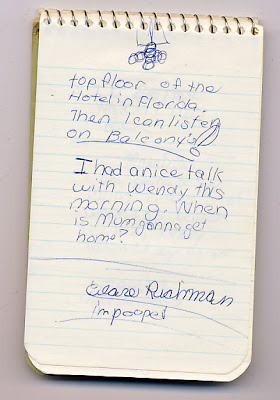 top floor of the
Hotel in Florida.
Then I can listen
on Balcony's!
I had a nice talk
with Wendy this
morning. When
is Mum gonna get
home?
Rushman